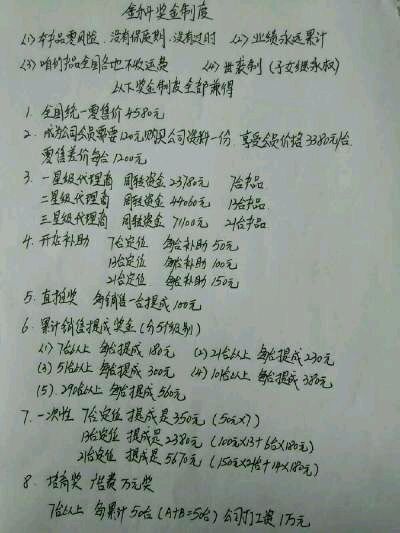 金科奖金制度
(1) 本产品零风险，没有保质期，没有过时 (2) 业绩永远累计
(3) 咱们产品全国各地不收运费 (4) 世袭制 (子女继承权)
以下奖金制度全部兼得
1. 全国统一零售价4580元
2. 成为公司会员需要120元购买公司资料一份，享受会员价格3380元/台.
零售差价每台1200元
3. 一星级代理商 周转资金23780元 7台产品
二星级代理商 周转资金44060元 13台产品
三星级代理商 周转资金71100元 21台产品
4. 开店补助 7台定位 每台补助50元
13台定位 每台补助100元
21台定位 每台补助150元
5. 直推奖 每销售一台提成100元
6. 累计销售提成奖金 (分5个级别)
(1) 7台以上 每台提成180元 (2) 21台以上 每台提成230元
(3) 51台以上 每台提成300元 (4) 101台以上 每台提成380元
(5). 290台以上 每台提成560元
7. 一次性 7台定位 提成是350元 (50元×7)
13台定位 提成是2380元 (100元×13+6台×180元)
21台定位 提成是5670元 (150元×21台+14×180元)
8. 培育奖 万元奖
7台以上 每累计50台 (A+B=50台) 公司打工资1万元